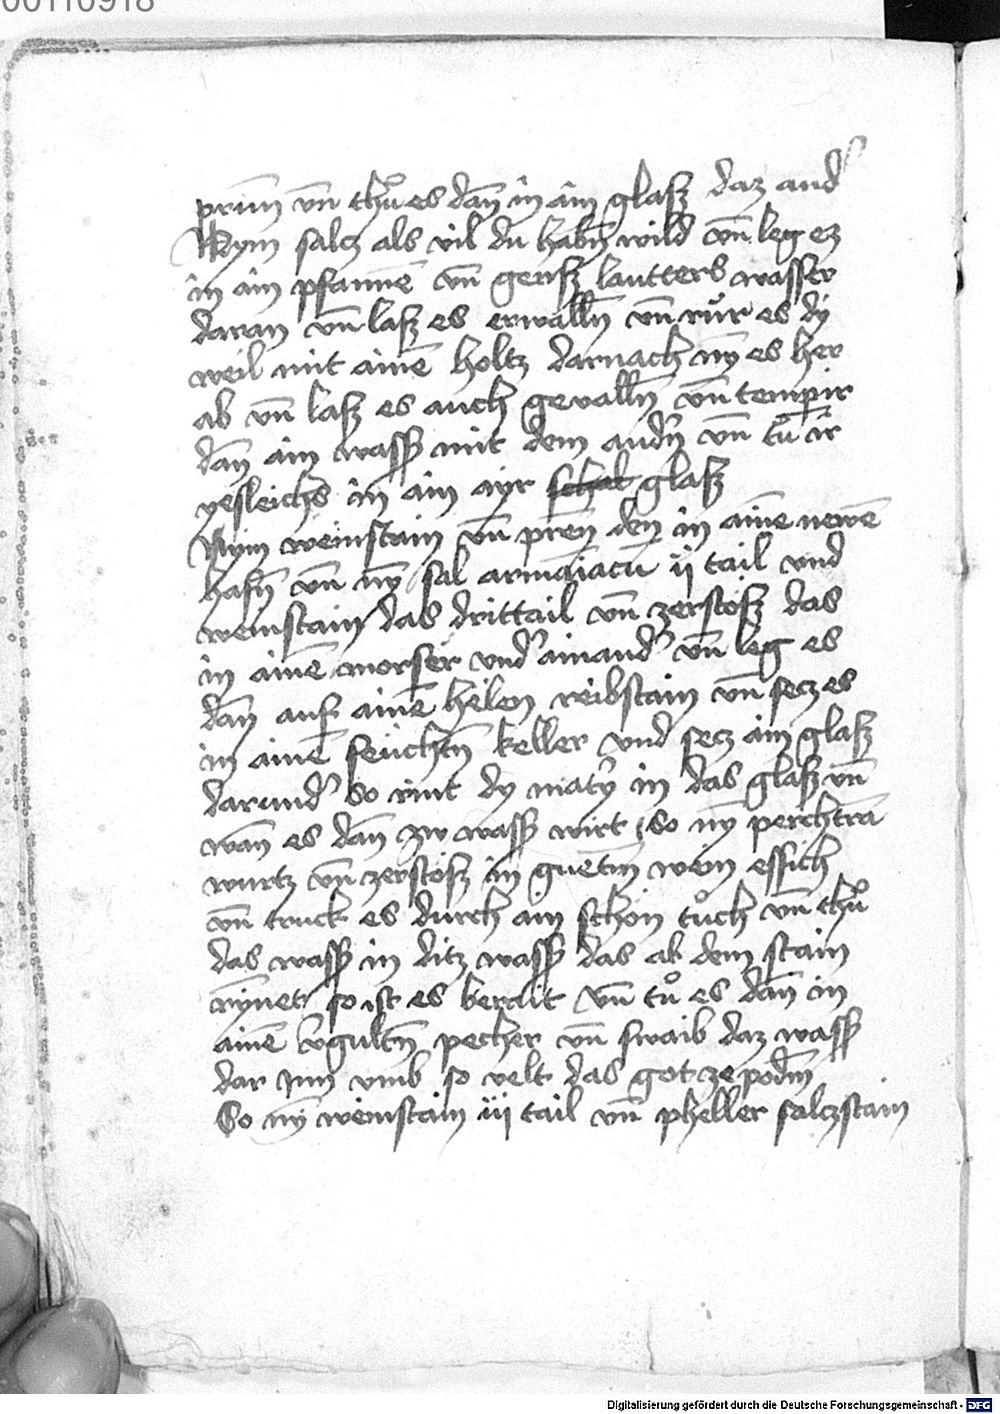 00110918
prinn vn̄ thů es dan̄ in ain glasz daz and͛
Nym salcz als vil du habn̄ wild vn̄ leg ez
in ain pfanne vn̄ geusz lautters wasser
daran vn̄ lasz es erwalln̄ vn̄ růr es dy
weil mit aine͞ holtz darnach ny͞ es her
ab vn̄ lasz es auch geualln̄ vn̄ temperir
dan̄ ain wass͛ mit dem andn̄ vn̄ tů ir
yesleichs in ain ayr glasz
Nym weinstain vn̄ pren̄ den in aine͞ newe͞
hafn̄ vn̄ ny͞ sal armaniacu͞ ij tail vnd
weinstain das drittail vn̄ zerstosz das
in aine͞ morser vnd͛ ainand͛ vn̄ leg es
dan̄ auf aine͞ helen reibstain vn̄ secz es
in aine͞ feuchtn̄ keller vnd secz ain glasz
darund͛ so rint dy mat͛y in das glasz vn̄
wan̄ es dan̄ zw wass͛ wirt so ny͞ perchtra͞
wurtz vn̄ zerstosz in guetm̄ wein essich
vn̄ truck es durch ain schon tůch vn̄ thů
das wass͛ in ditz wass͛ das ab dem stain
rynnet so ist es berait vn̄ tů es dan̄ in
aine͞ v͛gultn̄ pecher vn̄ swaib daz wass͛
dar jnn vmb so velt das got ze podm̄
So ny͞ weinstain iij tail vn̄ pheller salczstain
Digitalisierung gefördert durch die Deutsche Forschungsgemeinschaft - DFG